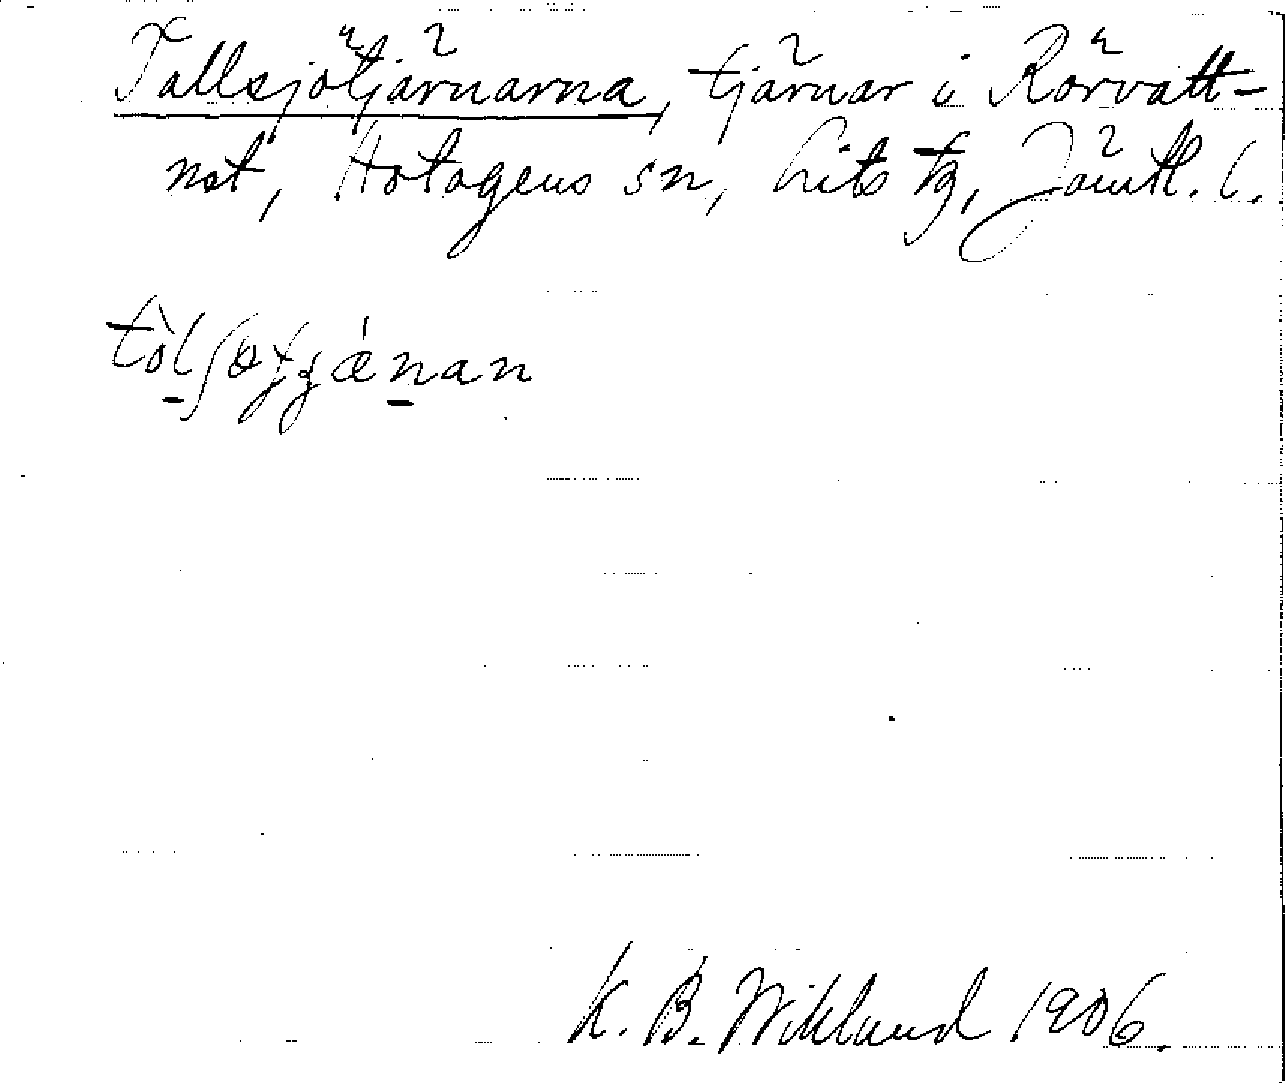 Tallsjötjärnarna, tjärnar i Rörvatt-
net, Hotagens sn, Lits tg, Jämtl. l.
K. B. Wiklund 1906.